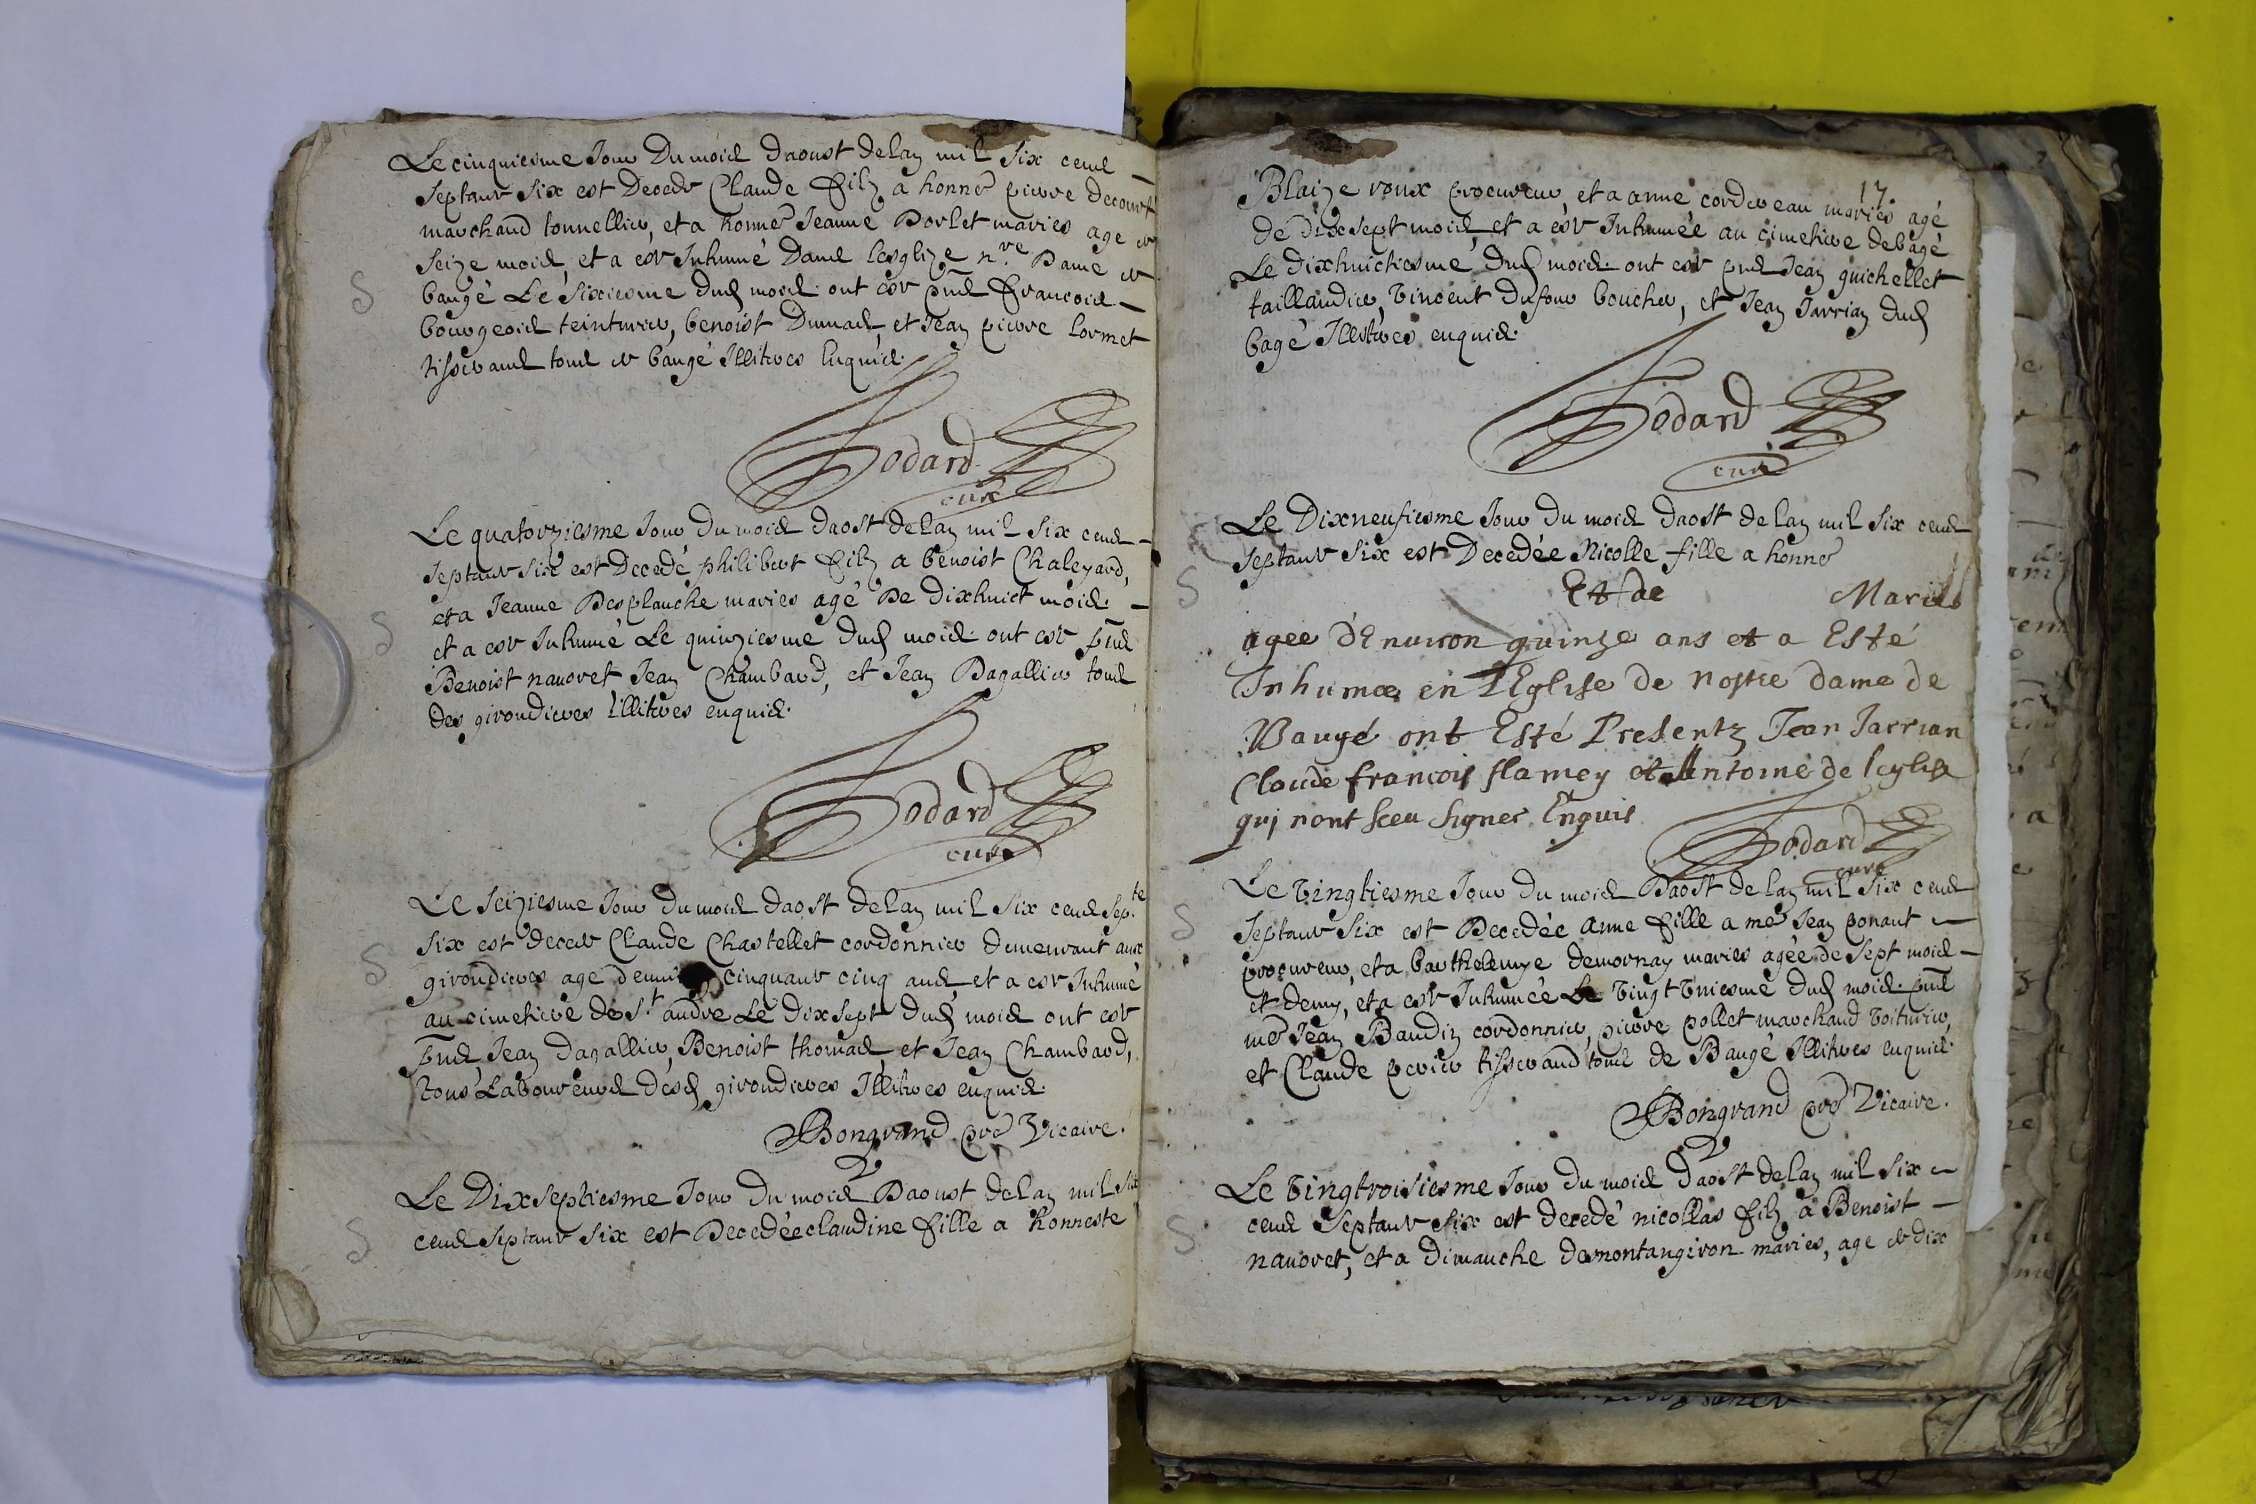 Le cinquiesme Jour Du moid daoust delan mil six cend
septante six est Decede Claude filz a honne pierre decourt
marchand tonnellier, et a honne Jeanne Dorlet maries age de
seize moid, et a este Inhumé Dand lesglize n.re Dame de
baugé Le sixiesme dud moid ont este pnd francoid
bourgeoid teinturier, benoist Dumad, et Jean pierre lormet
tisserand toud de baugé Illitères Enquid.
Godard
curé
Le quatorziesme Jour Du moid daost delan mil six cend
septante six est Decedé philibert filz a benoist Chaleyard,
et a Jeanne Desplanche maries agé De dixhuict moid.
et a este Inhumé Le quinziesme dud moid ont este pnd
Benoist nauoret Jean Chambard, et Jean Dagallier toud
des girondieres Illiteres enquid.
Godard
curé
Le seiziesme Jour du moid daost delan mil six cend sep.te
six est decede Claude Chastellet cordonnier demeurant aux
girondieres age denui cinquante cinq and, et a este Inhumé
au cimetiere de S.t andre Le dixsept dud moid ont este
pnd, Jean dagallier, Benoist thomad, et Jean Chambard,
tous Laboureurd desd girondieres Illiteres enquid.
Bongrand pre Vicaire.
Le Dixseptiesme Jour du moid Daoust delan mil six
cend septante six est Decedée claudine fille a honneste
17.
Blaize roux procureur, et a anne cordereau maries agé
de dixsept moid, et a este Inhumée au cimetiere debagé
Le dixhuictiesme dud moid. ont este pnd Jean guichellet
taillandier, Vincent dufour boucher, et Jean Jarrian dud
bagé Illiteres enquid.
Godard
curé
Le Dixneufiesme Jour du moid daost delan mil six cend
septante six est Decedée Nicolle fille a honne
Et de Mariés
agee d'Enuiron quinze ans et a Esté
Inhumee en l'Eglise de nostre dame de
Baugé ont Esté Presentz Jean Jarrian
Claude francois flamey et Antoine de leglise
qui nont sceu signer Enquis
Godard
curé
Le Vingtiesme Jour du moid Daost delan mil six cend
septante six est Decedée anne fille a me Jean ponant
procureur, et a barthelemye demornay maries agée de sept moid
et demy, et a este Inhumée Le Vingt Vniesme dud moid. pnd
me Jean Baudin cordonnier, pierre pollet marchand Voiturier,
et Claude perier tisserand toud de Baugé Illiteres enquid.
Bongrand pre Vicaire.
Le Vingtroisiesme Jour du moid daost delan mil six
cend septante six est decedé nicollas filz a Benoist
nauoret, et a dimanche demontangiron maries, age de dix